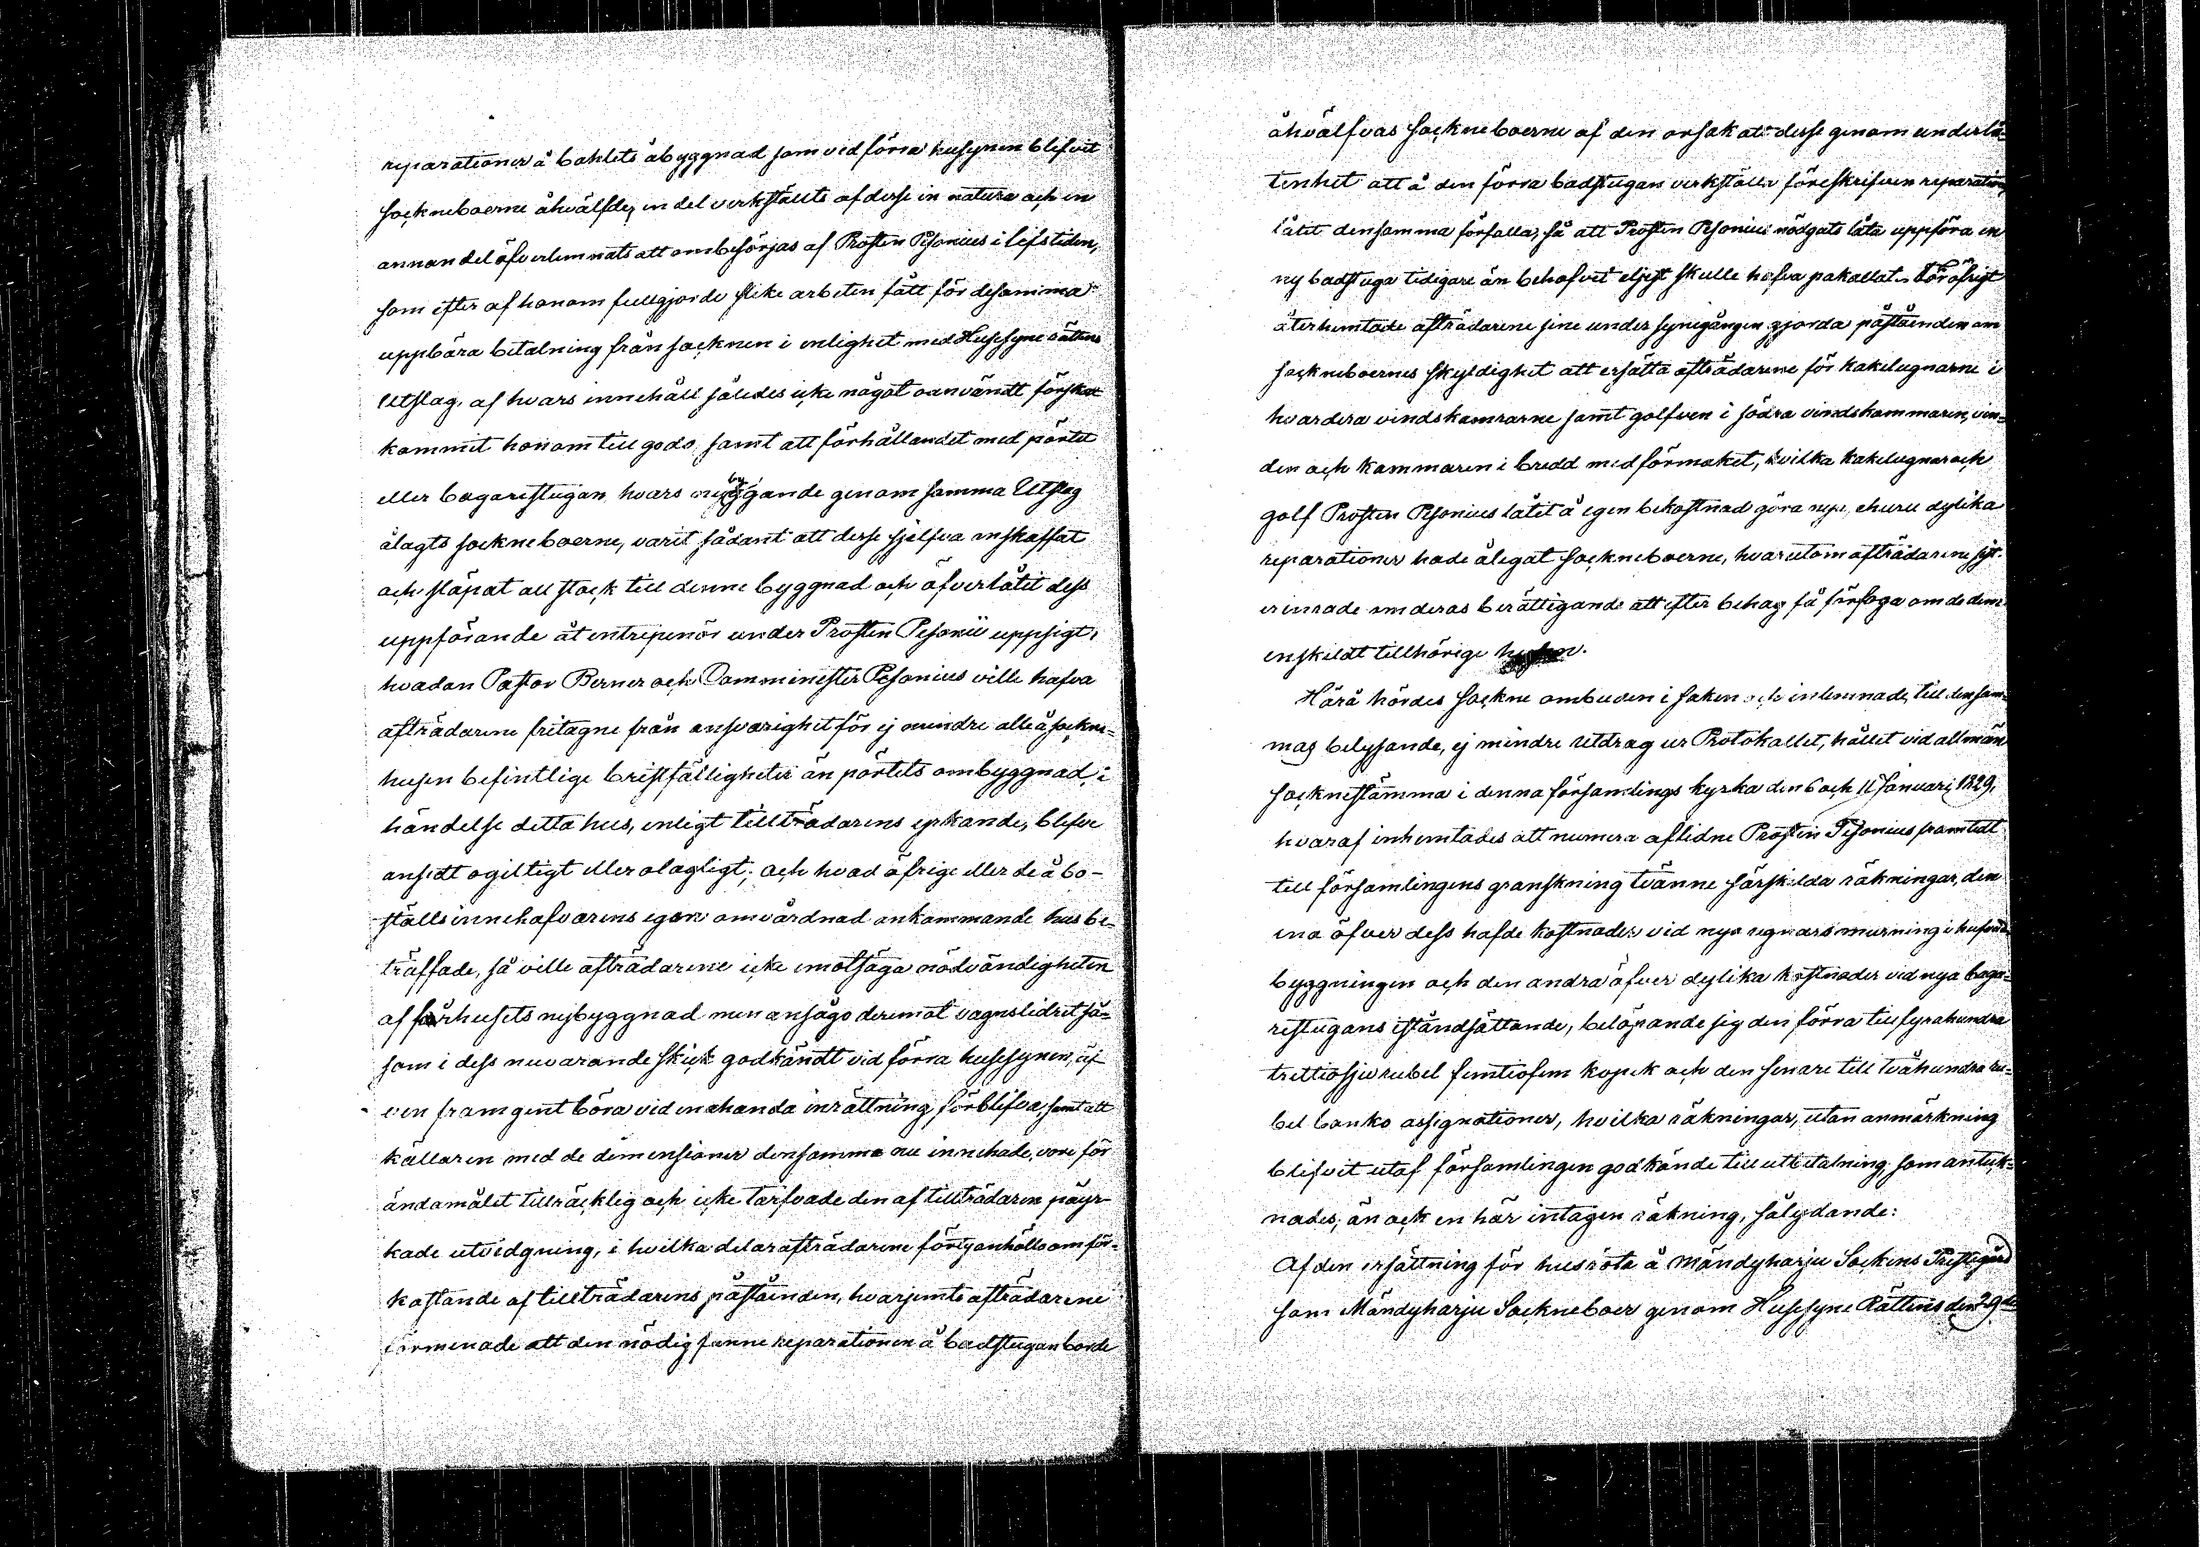 reparationer å bohlets åbyggnad som vid förra husesynen blifvit
sockneboerne åhvälfde, en del verkställts af desse in natura och en
annan del öfverlemnats att ombesörjas af Prosten Pesonius i lifstiden,
som efter af honom fullgjorde slike arbeten fått för desamma
uppbära betalning från socknen i enlighet med Husesyne Rättens
Utslag, af hvars innehåll således icke något oanvändt förskott
kommit honom till godo, samt att förhållandet med pörtet
eller bagarestugan, hvars byggande genom samma Utslag
ålagts sockneboerne, varit sådant att desse sjelfva anskaffat
och släpat all stock till denne byggnad och öfverlåtit dess
uppförande åt entreprenör under Prosten Pesonii uppsigt,
hvadan Pastor Berner och Comminister Pesonius ville hafva
afträdarene fritagne från ansvarighet för ej mindre alle å sockne-
husen befintlige bristfälligheter än pörtets ombyggnad, i
händelse detta hus, enligt tillträdarens yrkande, blefve
ansedt ogiltigt eller olagligt; och hvad öfrige eller de å bo-
ställsinnehafvarens egen omvårdnad ankommande hus be-
träffade, så ville afträdarene icke motsäga nödvändigheten
af fårhusets nybyggnad men ansågo deremot vagnslidret så-
som i dess nuvarande skick godkändt vid förra husesynen, äf-
ven framgent böra vid enahanda inrättning förblifva, samt att
källaren med de dimensioner densamma nu innehade, vore för
ändamålet tillräcklig och icke tarfvade den af tillträdaren påyr-
kade utvidgning, i hvilka delar afträdarene förty anhöllo om för-
kastande af tillträdarens påståenden, hvarjemte afträdarene
förmenade att den nödig funne reparationen å badstugan borde
åhvälfvas sockneboerne af den orsak att desse genom underlå-
tenhet att å den förra badstugan verkställa föreskrifven reparation,
låtit densamma förfalla, så att Prosten Pesonius nödgats låta uppföra en
ny badstuga tidigare än behofvet eljest skulle hafva påkallat. För öfrigt
återhemtade afträdarene sine under synegången gjorda påståenden om
sockneboernes skyldighet att ersätta afträdarene för kakelugnarne i
hvardera vindskamrarne samt golfven i södra vindskammaren, vin-
den och kammaren i bredd med förmaket, hvilka kakelugnar och
golf Prosten Pesonius låtit å egen bekostnad göra nya, ehuru dylika
reparationer hade ålegat sockneboerne, hvarutom afträdarene sist
erinrade om deras berättigande att efter behag få förfoga om de dem
enskildt tillhörige husen.
Härå hördes sockne ombuden i saken och inlemnade, till densam-
mas belysande, ej mindre utdrag ur Protokollet, hållet vid allmän
socknestämma i denna församlings kyrka den 6 och 11 Januari 1829,
hvaraf inhemtades att numera aflidne Prosten Pesonius framtedt
till församlingens granskning tvänne särskilda räkningar, den
ena öfver dess hafde kostnader vid nya ugnars murning i hufvud-
byggningen och den andra öfver dylika kostnader vid nya baga-
restugans iståndsättande, belöpande sig den förra till fyrahundra
trettiosju rubel femtiofem kopek och den senare till tvåhundra ru-
bel banko assignationer, hvilka räkningar, utan anmärkning
blifvit utaf församlingen godkände till utbetalning, som anteck-
nades; än ock en här intagen räkning, sålydande:
Af den ersättning för husröta å Mändyharju Sockens Prestegård
som Mändyharju Sockneboer genom Husesyne Rättens den 29de